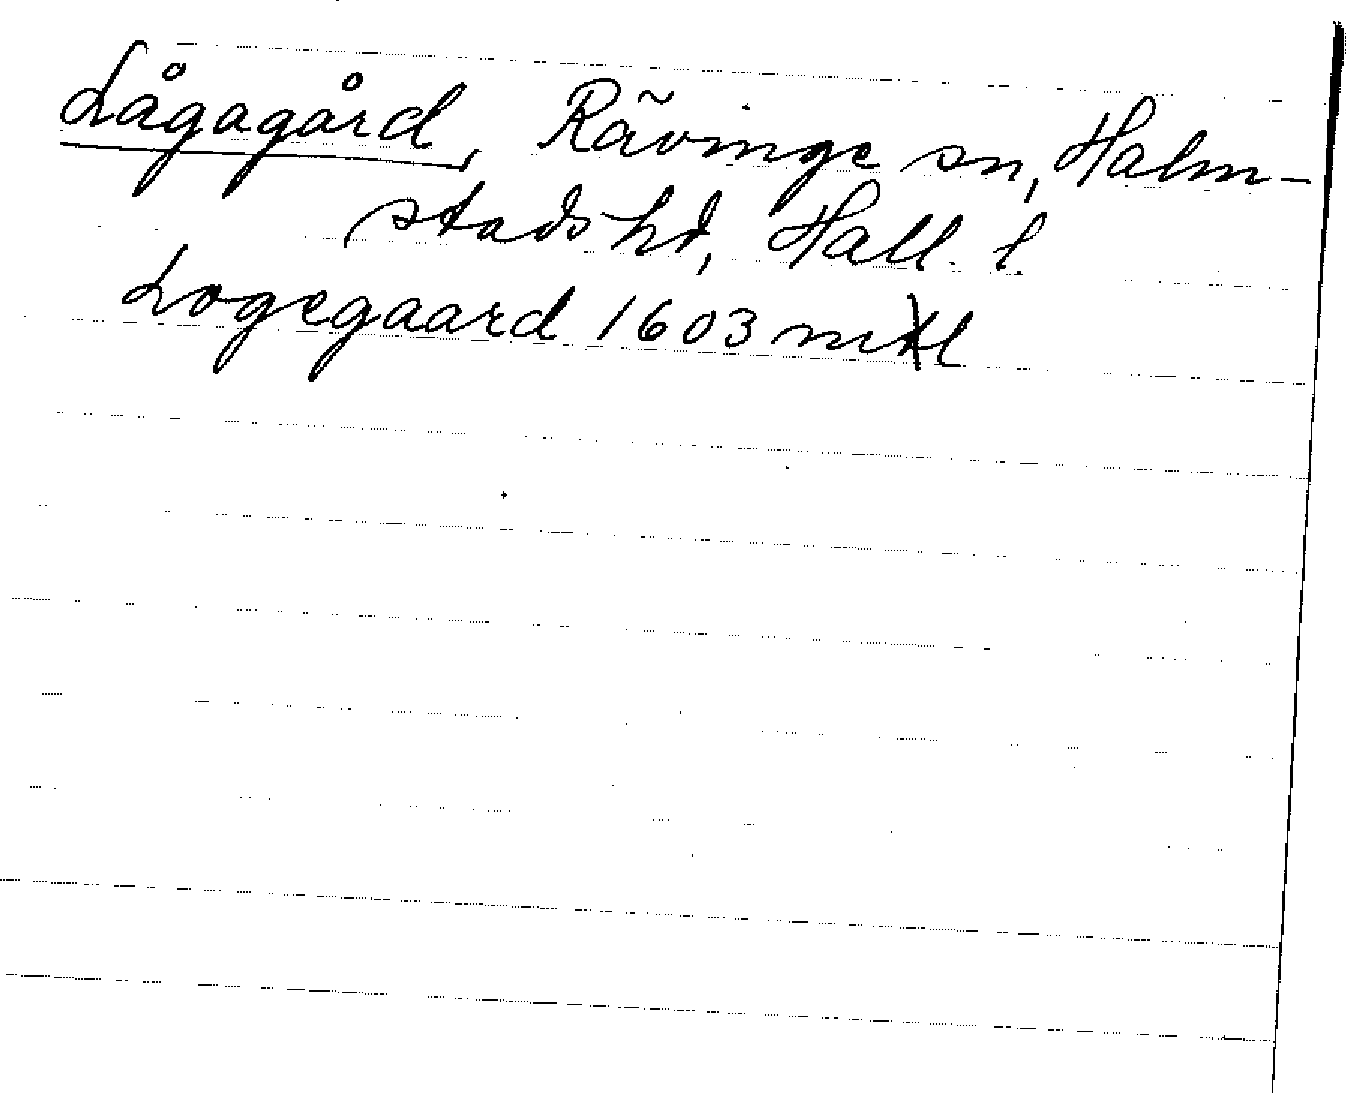 Lågagård, Rävinge sn, Halm-
stads hd, Hall. l.
Logegaard 1603